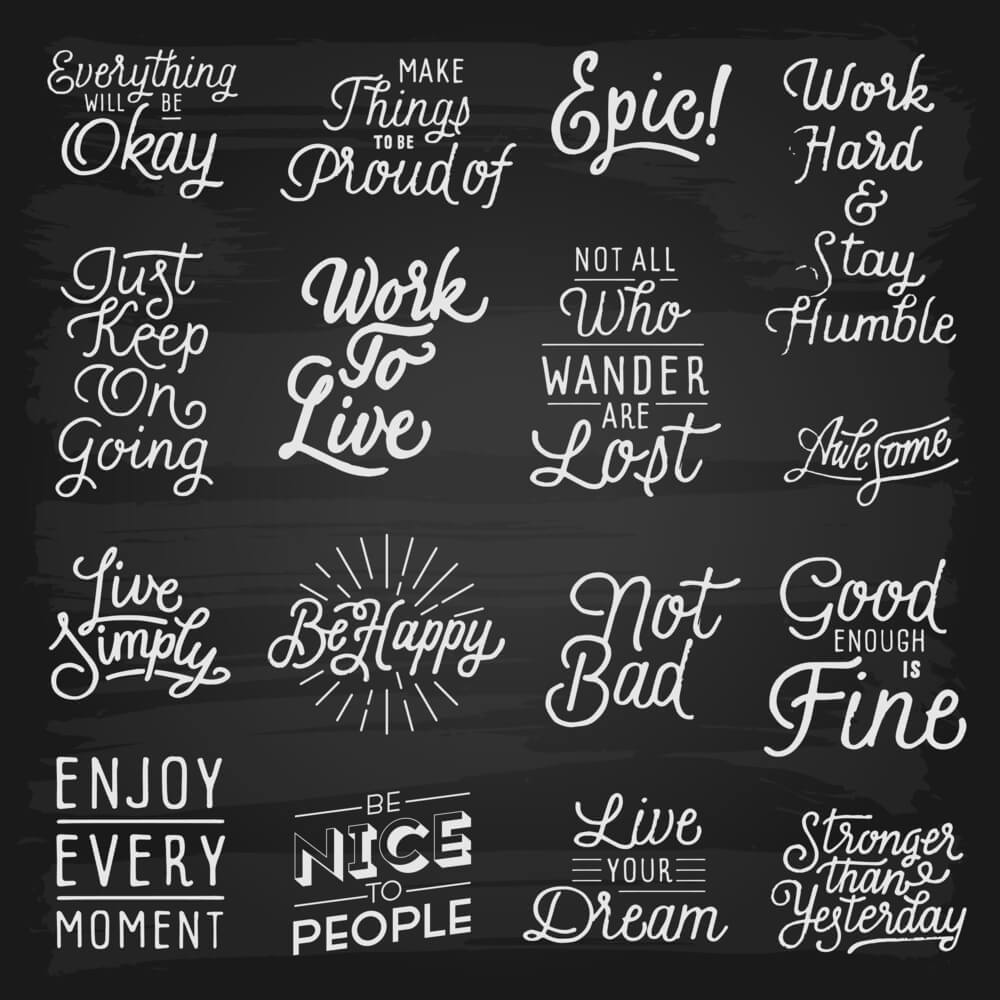 Everything
WILL BE
Okay
MAKE
Things
TO BE
Proud of
Epic!
Work
Hard
&
Stay
Humble
Just
Keep
On
Going
Work
To
Live
NOT ALL
Who
WANDER
ARE
Lost
Awesome
Live
Simply
Be Happy
Not
Bad
Good
ENOUGH
IS
Fine
ENJOY
EVERY
MOMENT
BE
NICE
TO
PEOPLE
Live
YOUR
Dream
Stronger
than
Yesterday